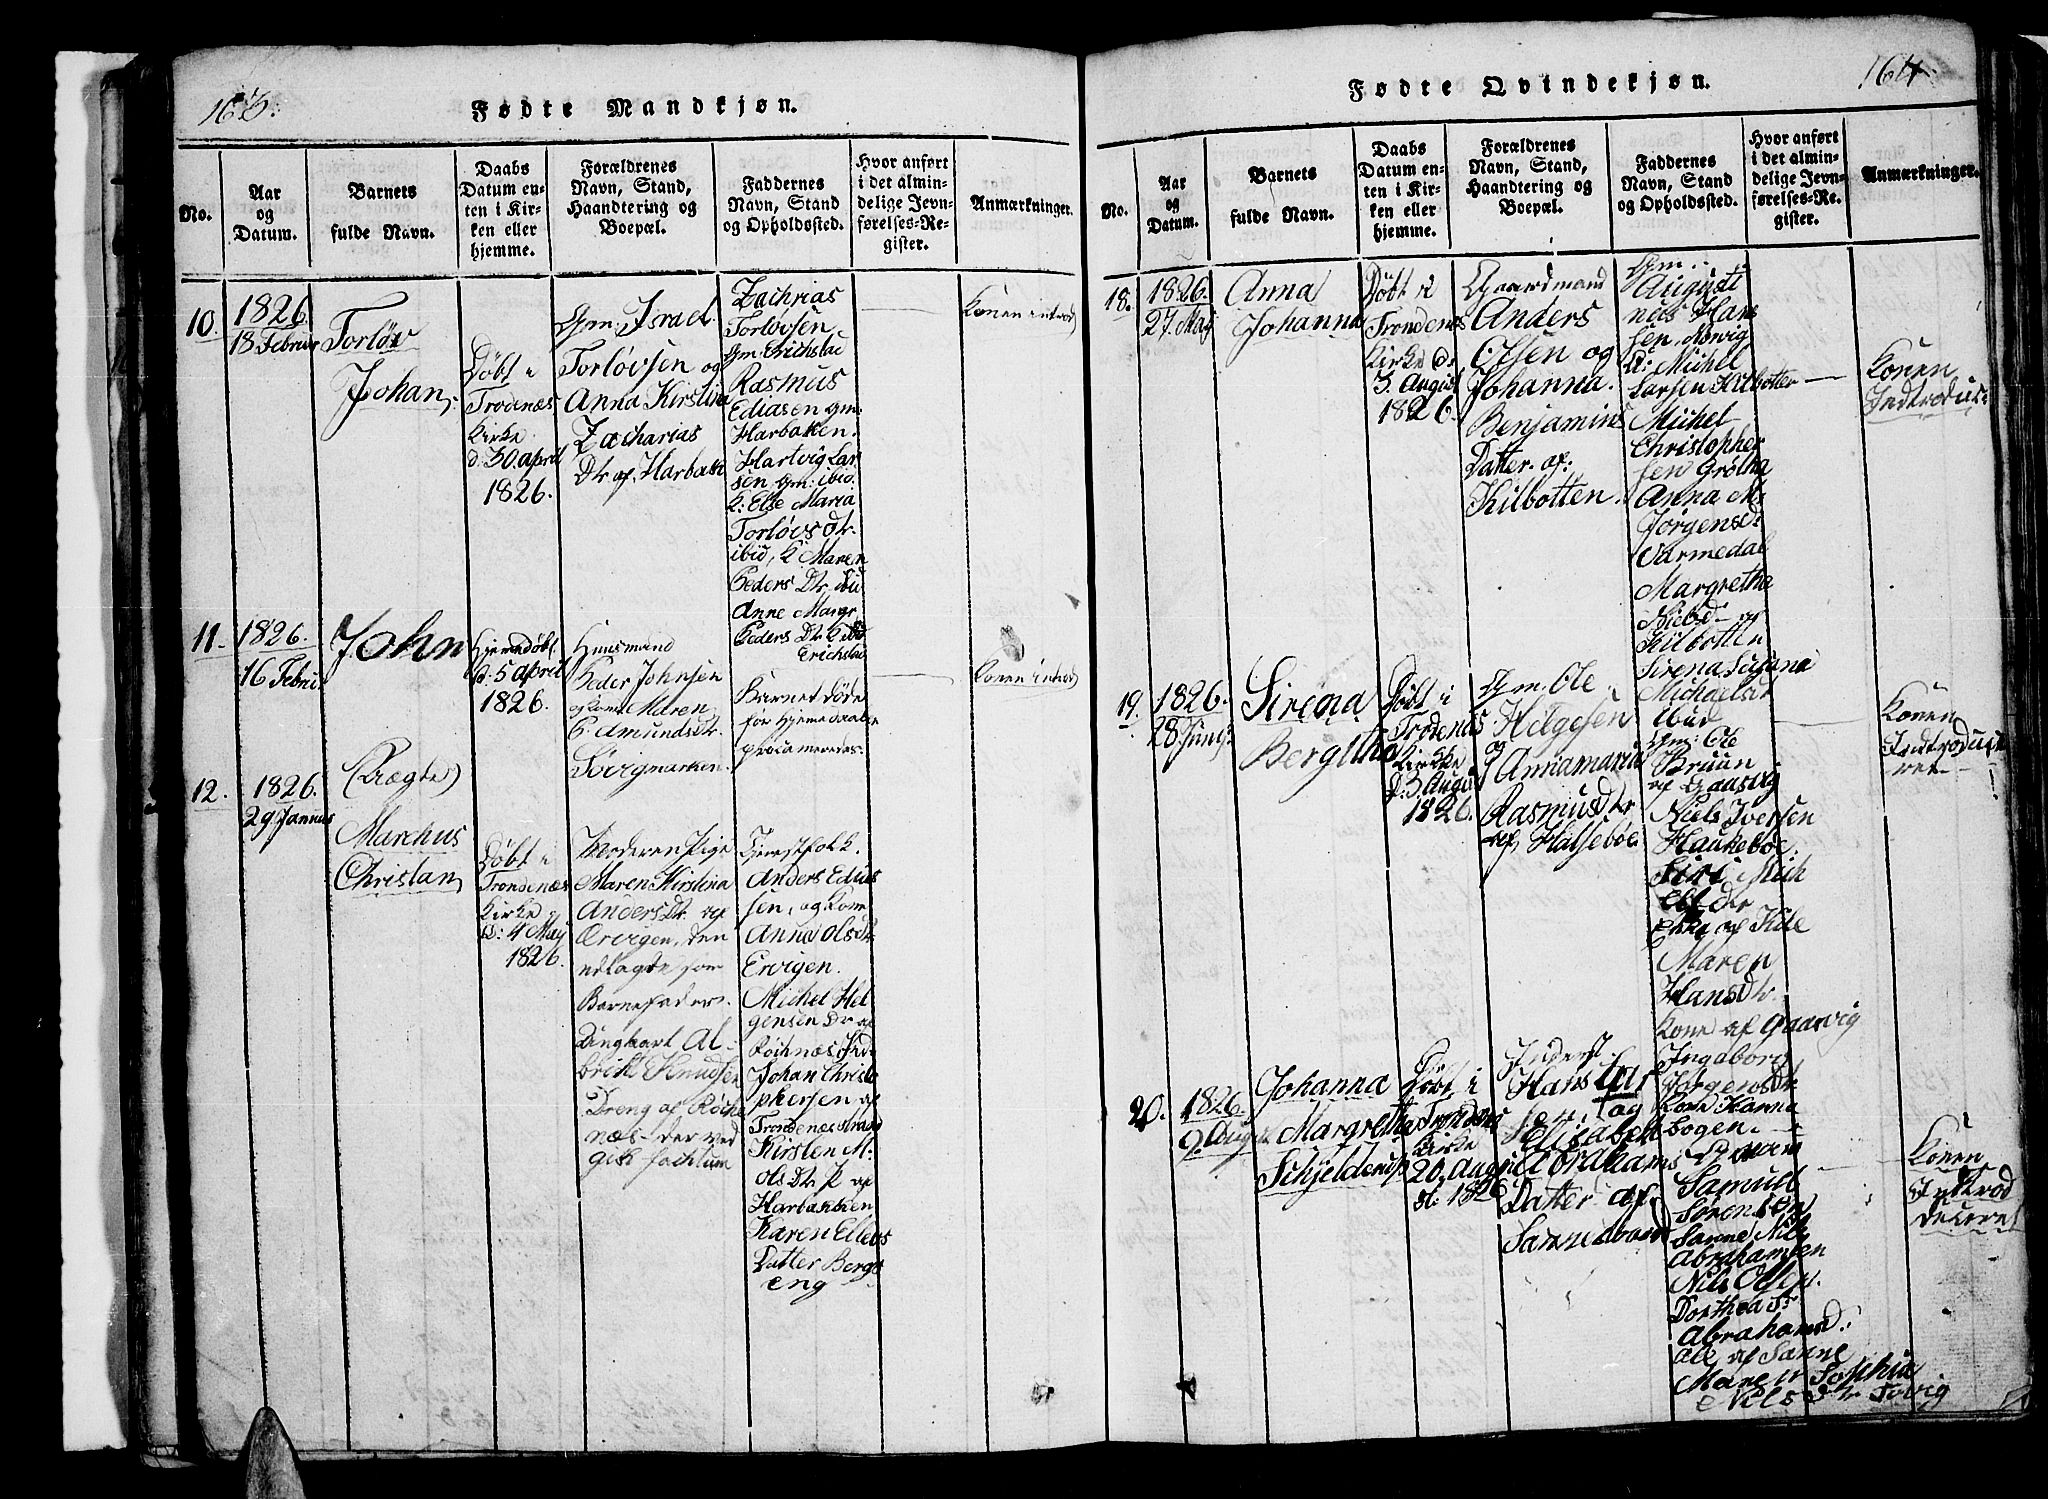 163.
Fødte Mandkjøn.
No.
Aar
og
Datum.
Barnets
fulde Navn.
Daabs
Datum en-
ten i Kir-
ken eller
hjemme.
Forældrenes
Navn, Stand,
Haandtering og
Boepæl.
Faddernes
Navn, Stand
og Opholdssted.
Hvor anført
i det almin-
delige Jevn-
førelses-Re-
gister.
Anmærkninger.
10.
1826.
18 Februr
Torløv
Johan,
Døbt i
Trodenæs
Kirke
d. 30. april
1826.
Gm: Israel
Torløvsen og
Anna Kirstina
Zacharias
Dtr af Harbak
Zachrias
Torlovsen
Gm: Erichstad
Rasmus
Ediasen gm:
Harbakken.
Hartvig Lar
sen gm: ibid.
K: Else Maria
Torløvs Dtr.
ibid, K Maren
Peders Dtr. ibid
Anne Margr
Peders Dtr. K ibid
Erichstad
Konen introd
11.
1826.
16 Februr
John
Hjemedøbt
d. 5 april
1826.
Huusmand
Peder Johnsen
og kone Maren
Amundsdtr.
Sørvigmarken.
Barnet døde
før Hjemedaaben
proclameredes.
Konen introd
12.
1826.
29 Januar
(Uægte)
Marchus
Christan,
Døbt i
Trondenæs
Kirke
d: 4 May
1826.
Moderen Pige
Maren Kirstina
Anders Dtr. af
Ervigen, den
udlagde for
Barnefader
Ungkarl Al-
bricht Knudsen
Dreng af Røche
næs - der ved
gik Factum
Tjenestfolk.
Anders Edias
sen, og Kone
Anna Ols Dtr
Ervigen.
Michel Hel
gensen Dr af
Røchnæs Ind
Johan Christo
phersen af
Trondenæs strand
Kirsten M.
Ols Dtr. P af
Harbakken
Karen Ellevs
Datter Bergs
eng
164.
Fødte Qvindekjøn.
No.
Aar
og
Datum.
Barnets
fulde Navn.
Daabs
Datum en-
ten i Kir-
ken eller
hjemme.
Forældrenes
Navn, Stand,
Haandtering og
Boepæl.
Faddernes
Navn, Stand
og Opholdssted.
Hvor anført
i det almin-
delige Jevn-
førelses-Re-
gister.
Anmærkninger.
18.
1826.
27. May
Anna
Johanna
Døbt i
Trondenes
Kirke d.
3 August
1826.
Gaardmand
Anders
Olsen og
Johanna
Benjamins
Datter. af:
Kilbotten.
Gm.
August
nus Han
sen, Røvig
D: Michel
Larsen Kilbotten
Michel
Christopher
sen Grøtha
Anna M.
Jørgensdr
Varmedal
Margretha
Nielsd - af
Kilbotten
Sirena Susana
Michaelsdr
ibid
Konen
Indtroduc-
19.
1826.
28. Junij.
Sirena
Bergitha
Døbt i
Trodenæs
Kirke
D: 3. Augu
1826.
Gm: Ole
Helgesen
og
Annamaria
Rasmusdtr
af Halsebøe
Gm: Ole
Bruun
af Gaasvig
Niels Iversen
Haukebøe.
Siri Mich
elsdtr
Enke af Kile
Maren
Hansdtr.
Kone af Gaarvig
Ingeborg
Jørgensdtr
Kone Kanne
bogen
Konen
Indtroduce
ret
20.
1826.
9. August
Johanna
Margretha
Schjelderup
Døbt i
Trondenæs
Kirke
20 August
A: 1826
Inderst
Hans Lar
sen, og
Elisabeth
Abrahams
Datter af.
Samuel
Sørensen
Sanne Nils
Abrahamsen
Nils Olsen
Dorthea
Abrahamsd.
alle af Sanne
Maren Sophia
Nils Dtr Søvig
Konen
Introd
duceret